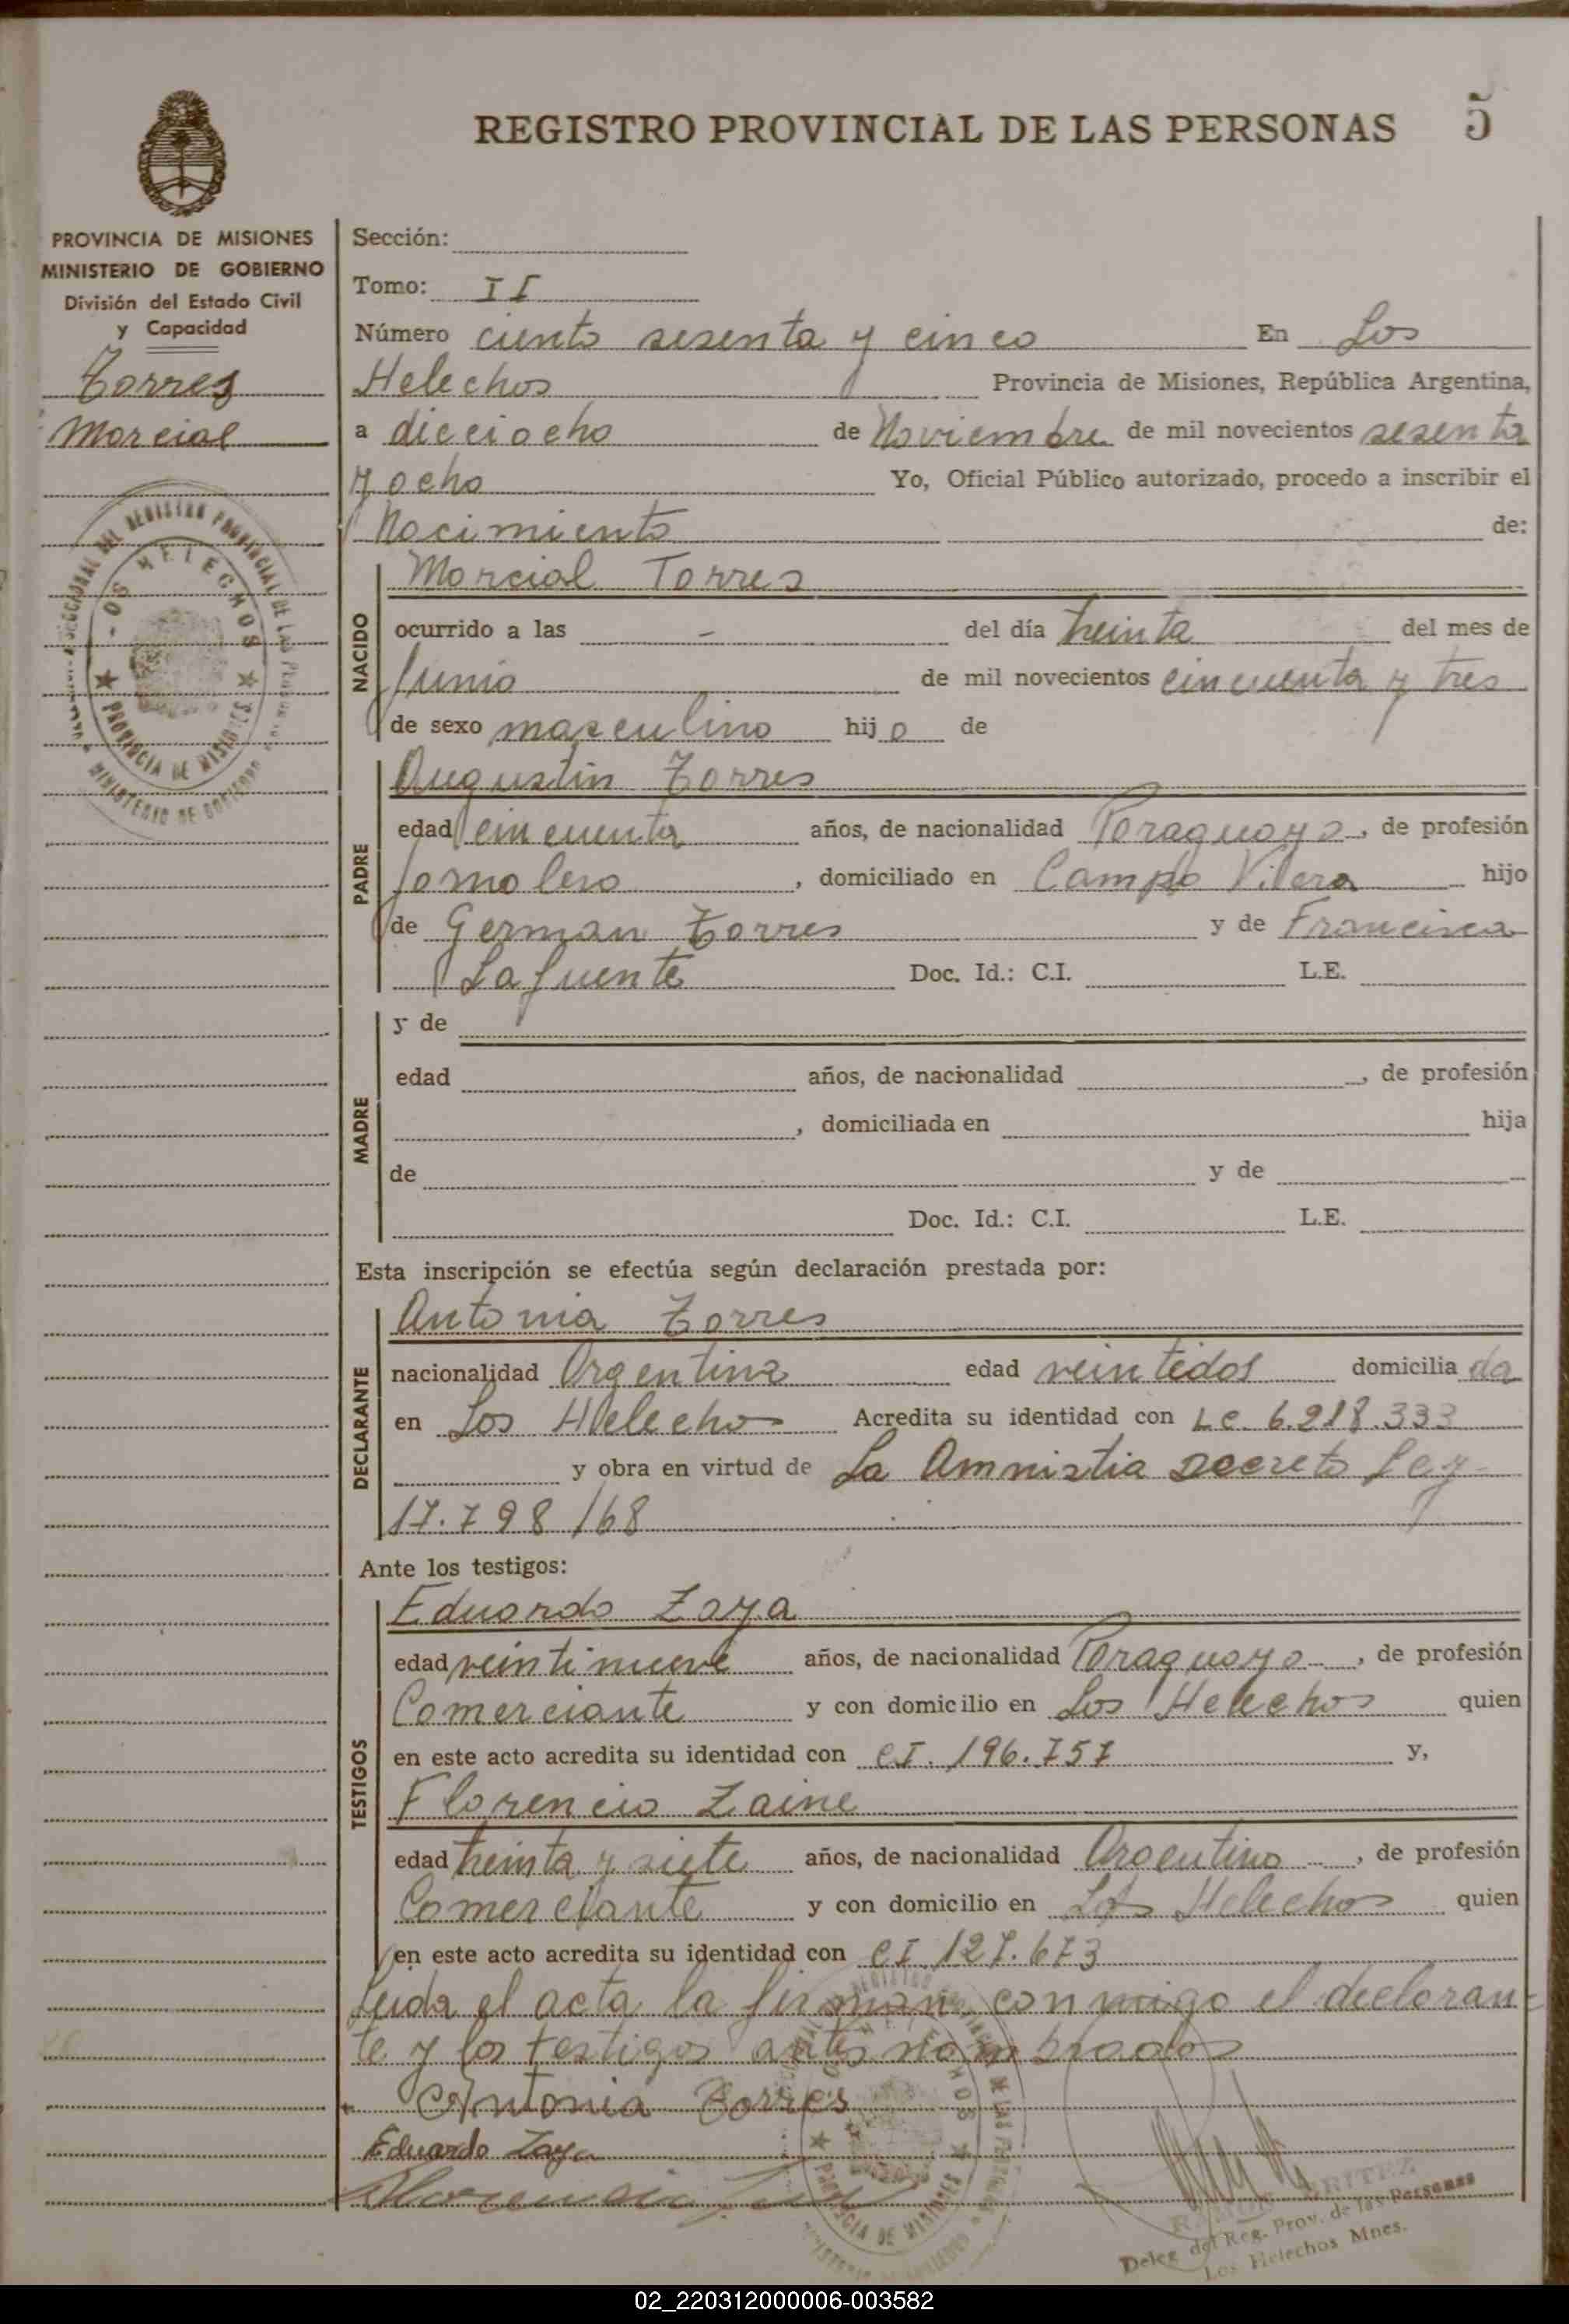 REGISTRO PROVINCIAL DE LAS PERSONAS 5
PROVINCIA DE MISIONES
MINISTERIO DE GOBIERNO
División del Estado Civil
y Capacidad
Torres
Marcial
SECCIONAL DEL REGISTRO PROVINCIAL DE LAS PERSONAS
LOS HELECHOS
PROVINCIA DE MISIONES
MINISTERIO DE GOBIERNO
Sección:
Tomo: II
Número ciento sesenta y cinco En Los
Helechos Provincia de Misiones, República Argentina,
a dieciocho de Noviembre de mil novecientos sesenta
y ocho Yo, Oficial Público autorizado, procedo a inscribir el
Nacimiento de:
NACIDO
Marcial Torres
ocurrido a las - del día treinta del mes de
Junio de mil novecientos cincuenta y tres
de sexo masculino hij o de
PADRE
Augustin Torres
edad cincuenta años, de nacionalidad Paraguaya, de profesión
Jornalero, domiciliado en Campo Vilera hijo
de German Torres y de Francisca
Lafuente Doc. Id.: C.I. L.E.
MADRE
y de
edad años, de nacionalidad , de profesión
, domiciliada en hija
de y de
Doc. Id.: C.I. L.E.
Esta inscripción se efectúa según declaración prestada por:
DECLARANTE
Antonia Torres
nacionalidad Argentina edad veintidos domicilia da
en Los Helecho Acredita su identidad con Lc. 6.218.333
y obra en virtud de La Amnistia Decreto Ley
17.798/68
Ante los testigos:
TESTIGOS
Eduardo Zaya
edad veintinueve años, de nacionalidad Paraguayo, de profesión
Comerciante y con domicilio en Los Helechos quien
en este acto acredita su identidad con CI. 196.757 y,
Florencio Zaine
edad treinta y siete años, de nacionalidad Argentino, de profesión
Comerciante y con domicilio en Los Helechos quien
en este acto acredita su identidad con CI 127.673
Leida el acta la firman conmigo el declaran-
te y los testigos antes nombrados
Antonia Torres
Eduardo Zaya
Florencio
Deleg. del Reg. Prov. de las Personas
Los Helechos Mnes.
02_220312000006-003582